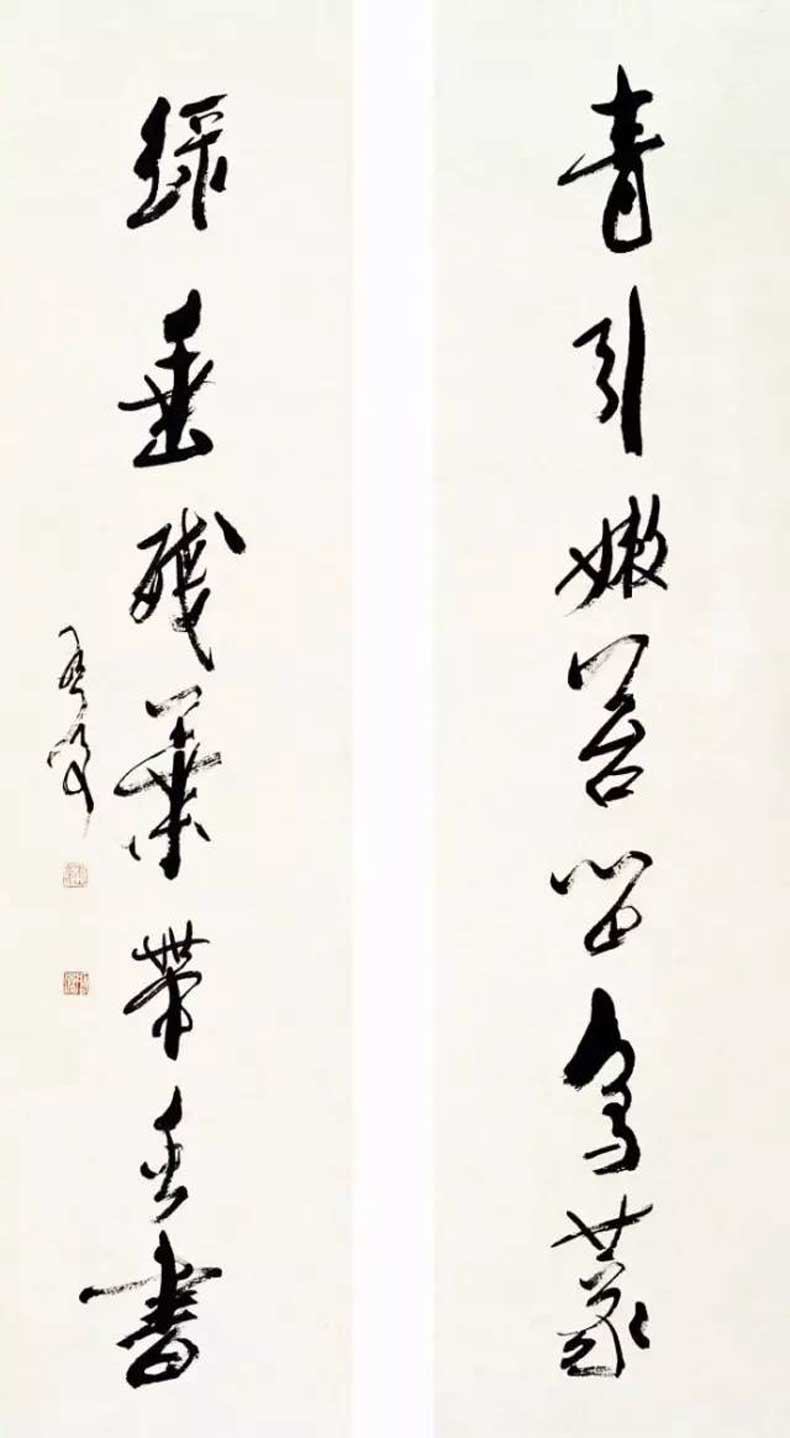 青引嫩苔留鳥篆
綠垂殘葉帶虫書